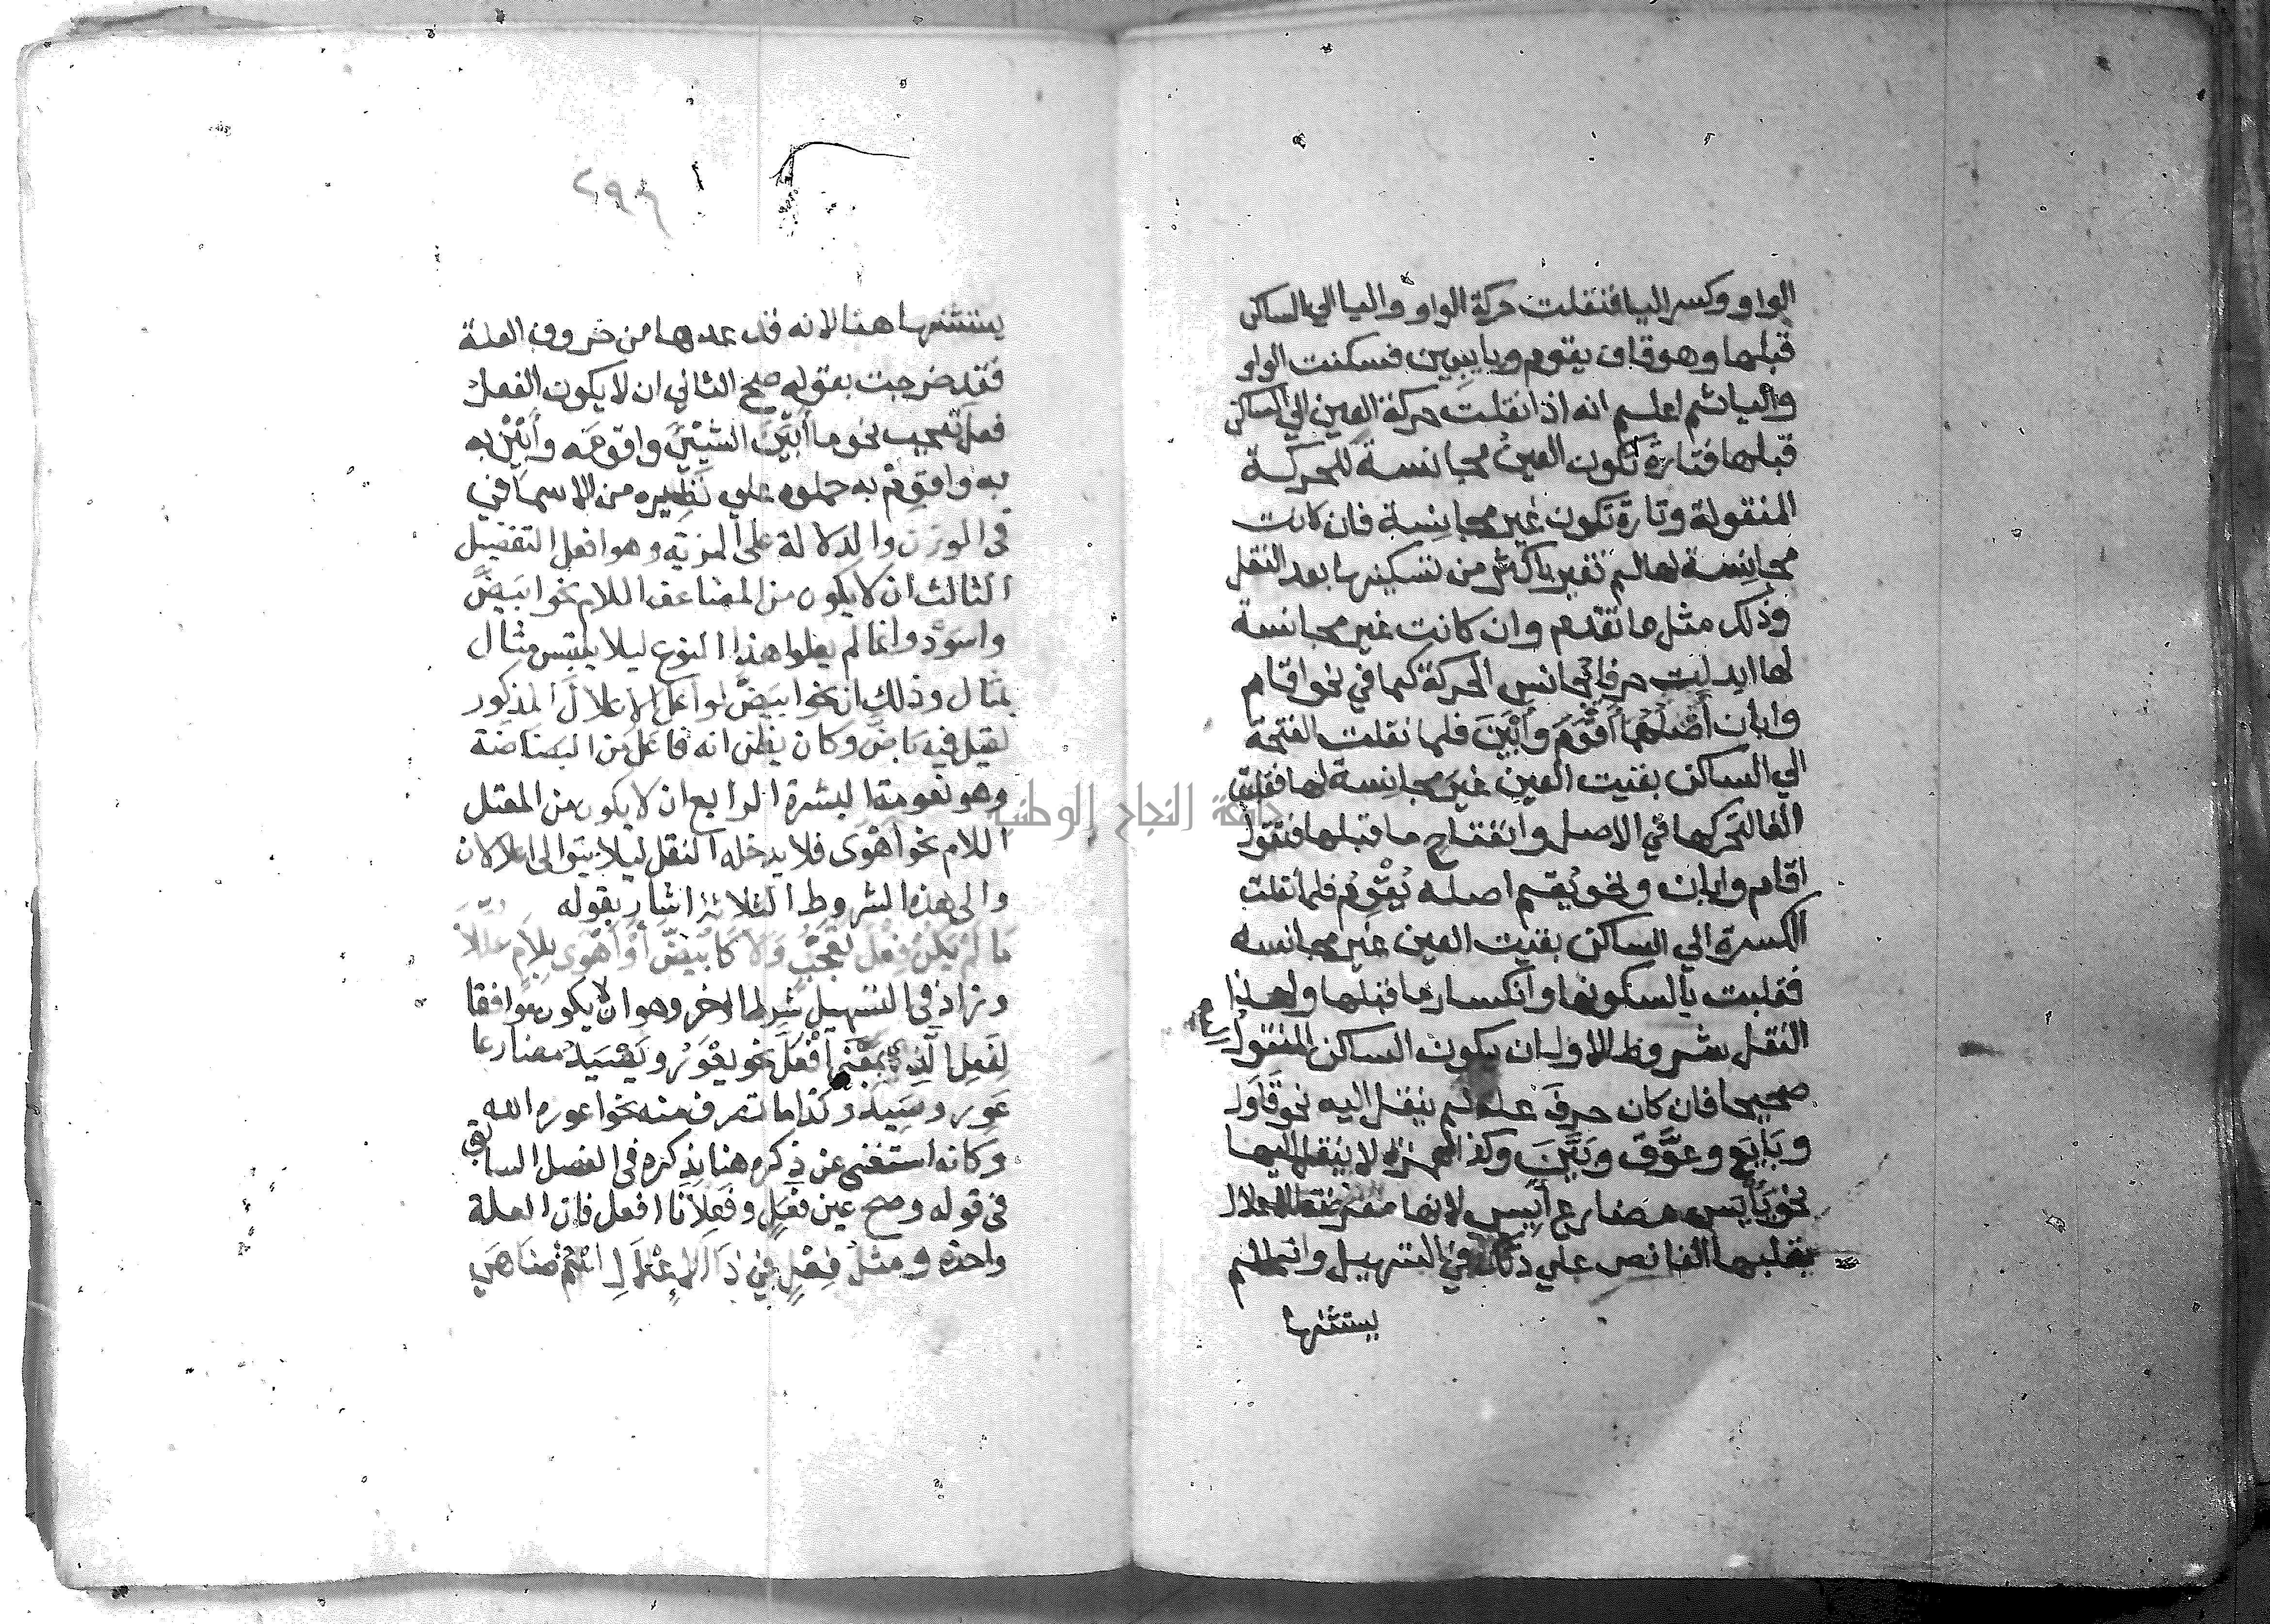 الواو وكسر اليا فنقلت حركة الواو واليا الي الساكن
قبلها وهو قاف يقوم وبا يبين فسكنت الواو
واليا ثم اعلم انه اذا نقلت حركة العين الي الساكن
قبلها فتارة تكون العين مجانسة للحركة
المنقولة وتارة تكون غير مجانسة فان كانت
مجانسة لها لم تغير باكثر من تسكينها بعد النقل
وذلك مثل ما تقدم وان كانت غير مجانسة
لها ابدلت حرفا يجانس الحركة كما في نحو اقام
وابان أصلهما أَقْوَمَ وَأَبْيَنَ فلما نقلت الفتحة
الي الساكن بقيت العين غير مجانسة لها فقلبت
الفا لتحركها في الاصل وانفتاح ما قبلها فتقول
اقام وابان ونحو يقيم اصله يُقْوِم فلما نقلت
الكسرة الي الساكن بقيت العين غير مجانسه
فقلبت يا لسكونها وانكسار ما قبلها ولهذا
النقل شروط الاول ان يكون الساكن المنقول
صحيحا فان كان حرف علة لم ينقل اليه نحو قَاوَل
وبَايَعَ وعَوَّقَ وبَيَّنَ وكذا الهمزة لا ينقل اليها
نحو يَأْيَس مضارع أَيِسَ لانها معرضة للاعلال
بقلبها الفا نص علي ذلك في التسهيل وانما لم
يستثنها
٢٩٩
يستثنها هنا لانه قد عدها من حروف العلة
فقد خرجت بقوله صح الثاني ان لا يكون الفعل
فعل تعجب نحو ما أَبْيَنَ الشيئ واقومه وأَبْيِنْ به
به واقوِمْ به حملوه علي نظيره من الاسما في
في الوزن والدلالة على المزية وهو افعل التفضيل
الثالث ان لا يكون من المضاعف اللام نحو ابيَضَّ
واسوَدَّ وانما لم يعلوا هذا النوع ليلا يلتبس مثال
بمثال وذلك ان نحو ابيَضَّ لو اعل الاعلال المذكور
لقيل فيه بَاضَّ وكان يظن انه فاعَل من البضاضة
وهو نعومة البشرة الرابع ان لا يكون من المعتل
اللام نحو أَهْوَى فلا يدخله النقل ليلا يتوالى اعلالان
والى هذه الشروط الثلاثة اشار بقوله
مَا لَمْ يَكُنْ فِعْلَ تَعَجُّبٍ وَلَا كَابْيَضَّ أَوْ أَهْوَى بِلَامٍ عُلِّلَا
وزاد في التسهيل شرطا اخر وهو ان لا يكون موافقا
لِفَعِلَ الَّذي بمعْنى أَفْعَلَّ نحو يَعْوَرُ ويَصْيَدُ مضارعا
عَوِرَ وصَيِدَ وكذا ما تصرف منه نحو اعوره الله
وكانه استغنى عن ذكره هنا بذكره في الفصل السابق
في قوله وصح عين فَعَلٍ وفَعِلَا ذا افعل فان العلة
واحدة ومثل فِعْلٍ في ذَا الاِعْلَالِ اسْمٌ ضَاهَى
جامعة النجاح الوطنية